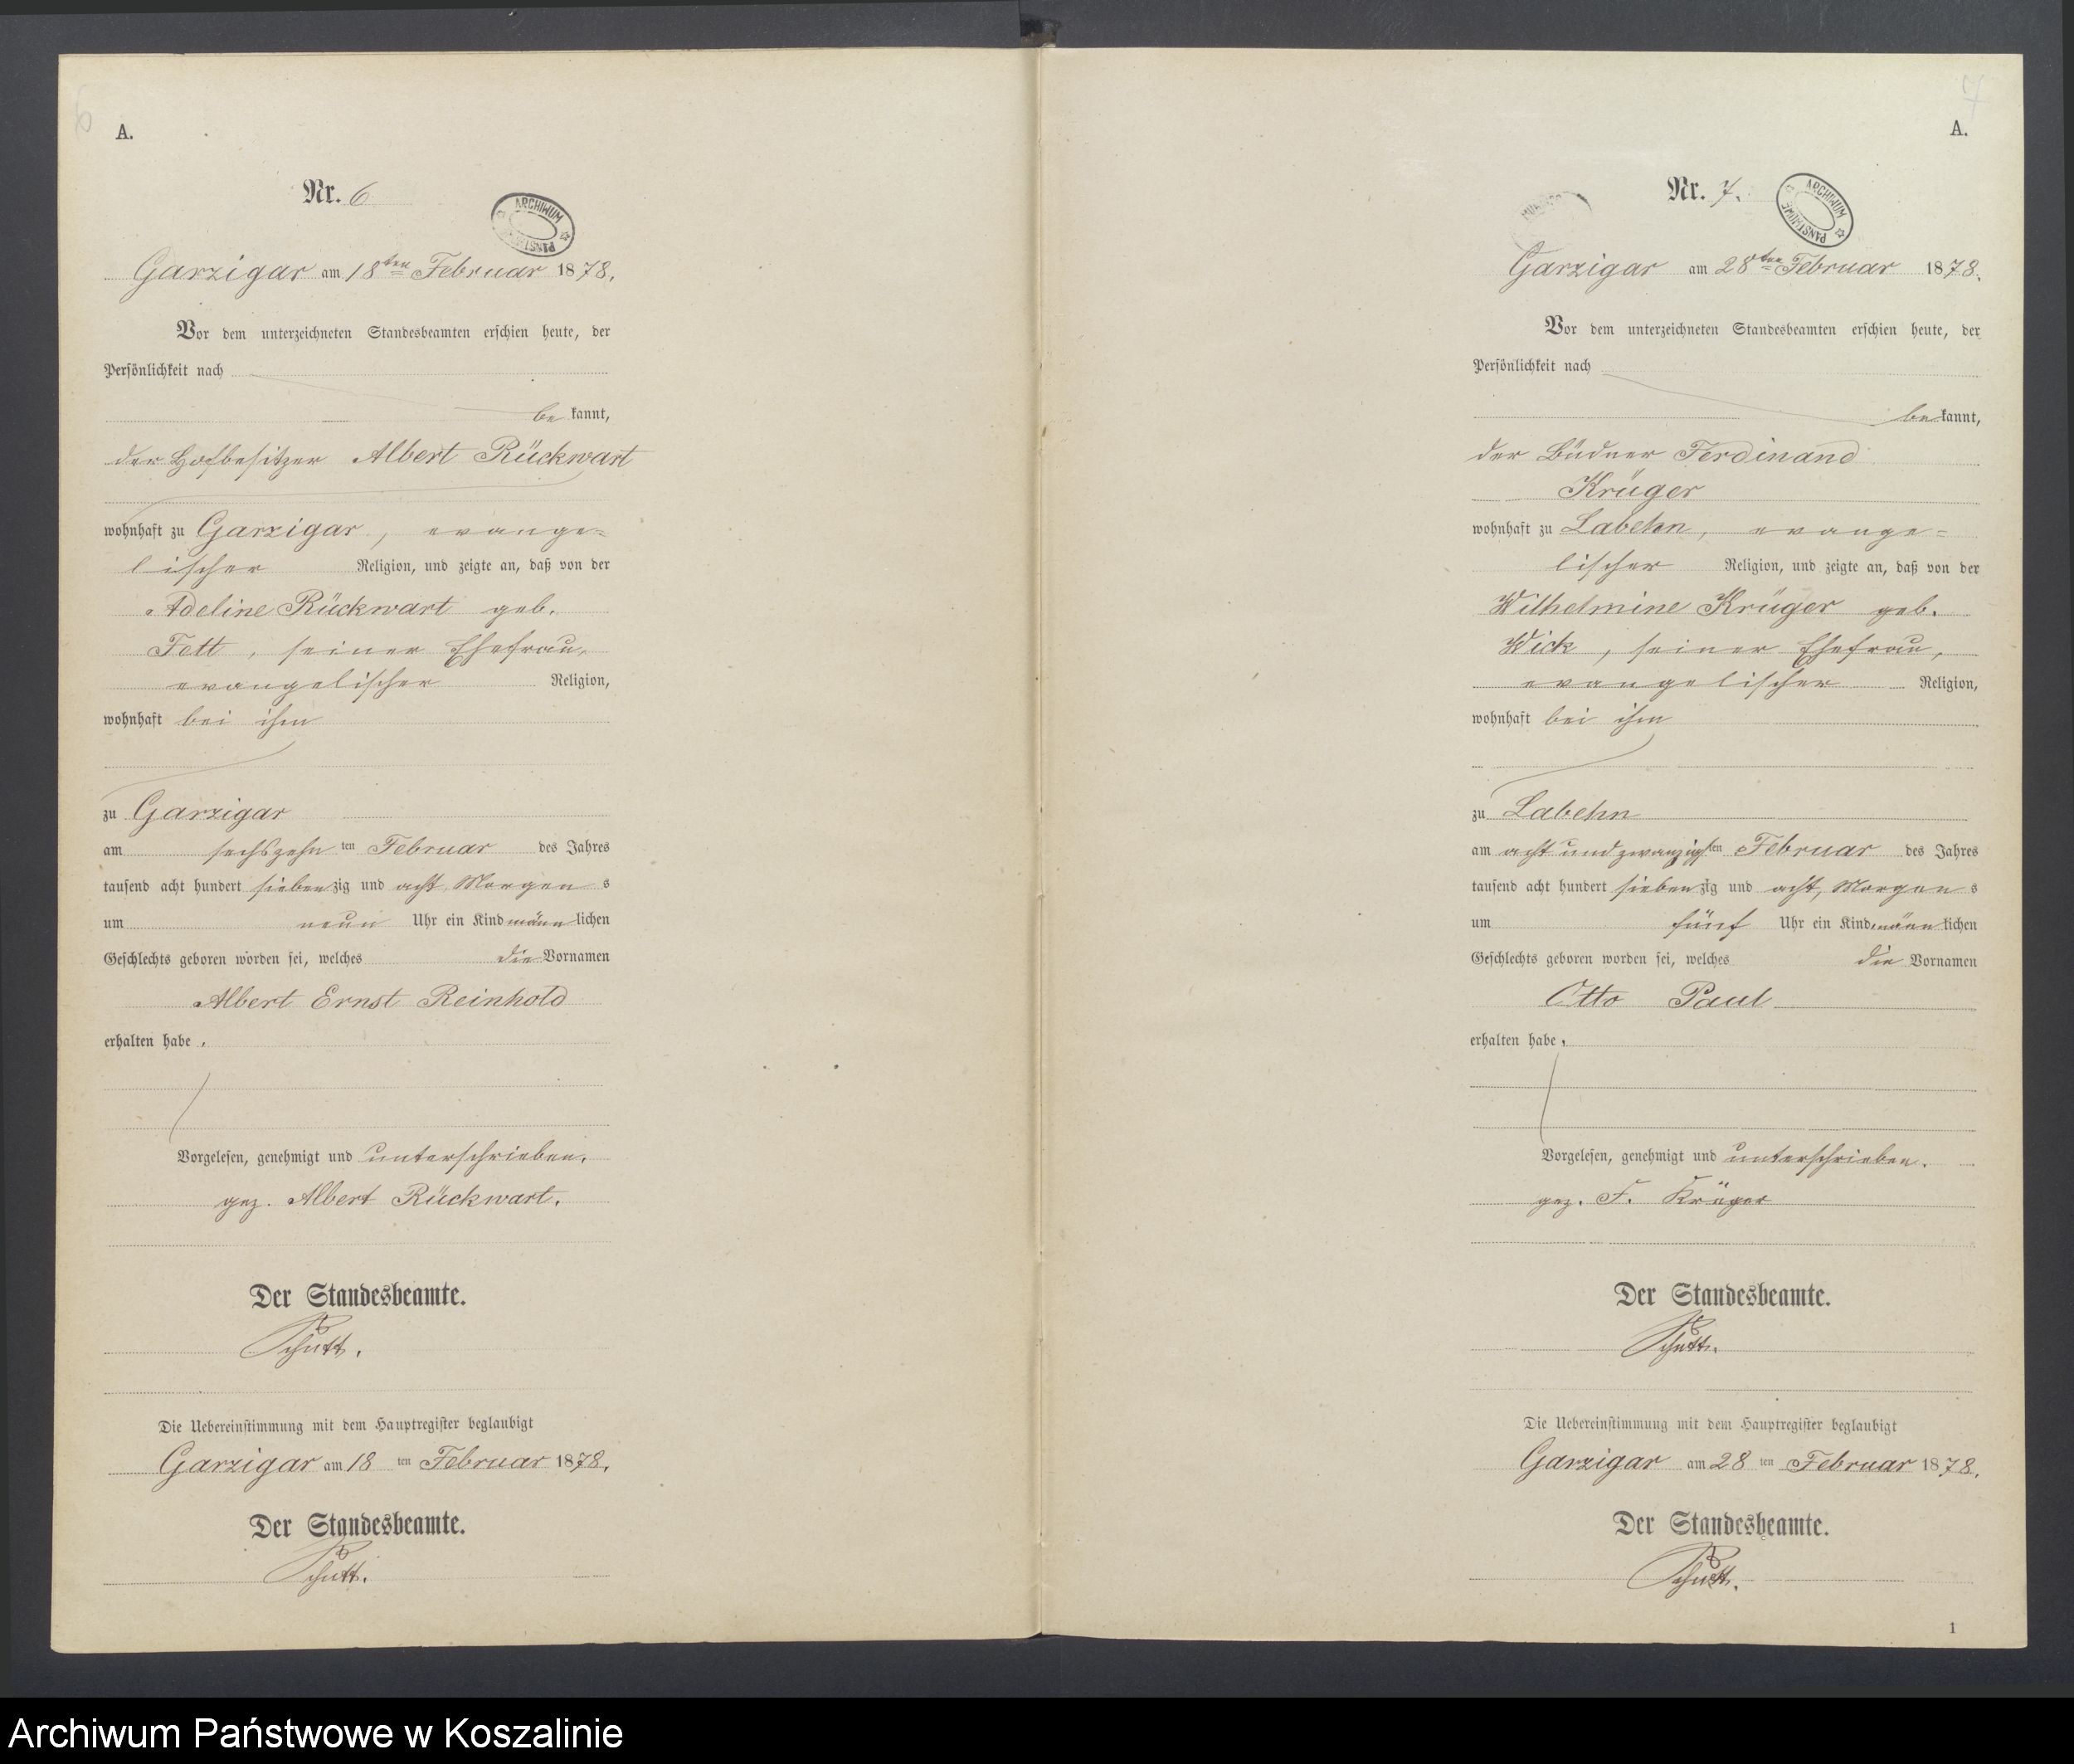 6
A.
Nr. 6
ARCHIWUM
PAŃSTWOWE
Garzigar am 18ten Februar 1878.
Vor dem unterzeichneten Standesbeamten erschien heute, der
Persönlichkeit nach
be kannt,
der Hofbesitzer Albert Rückwart
wohnhaft zu Garzigar, evange=
lischer Religion, und zeigte an, daß von der
Adeline Rückwart geb.
Fett, seiner Ehefrau,
evangelischer Religion,
wohnhaft bei ihm
zu Garzigar
am sechszehn ten Februar des Jahres
tausend acht hundert siebenzig und acht Morgens
um neun Uhr ein Kind männlichen
Geschlechts geboren worden sei, welches die Vornamen
Albert Ernst Reinhold
erhalten habe.
Vorgelesen, genehmigt und unterschrieben.
gez. Albert Rückwart.
Der Standesbeamte.
Schutt.
Die Uebereinstimmung mit dem Hauptregister beglaubigt
Garzigar am 18 ten Februar 1878.
Der Standesbeamte.
Schutt.
7
A.
Nr. 7.
ARCHIWUM
PAŃSTWOWE
Garzigar am 28ten Februar 1878.
Vor dem unterzeichneten Standesbeamten erschien heute, der
Persönlichkeit nach
be kannt,
der Büdner Ferdinand
Krüger
wohnhaft zu Labehn, evange=
lischer Religion, und zeigte an, daß von der
Wilhelmine Krüger geb.
Wick, seiner Ehefrau,
evangelischer Religion,
wohnhaft bei ihm
zu Labehn
am acht und zwanzigsten Februar des Jahres
tausend acht hundert siebenzig und acht, Morgens
um fünf Uhr ein Kind männlichen
Geschlechts geboren worden sei, welches die Vornamen
Otto Paul
erhalten habe.
Vorgelesen, genehmigt und unterschrieben.
gez. F. Krüger
Der Standesbeamte.
Schutt.
Die Uebereinstimmung mit dem Hauptregister beglaubigt
Garzigar am 28 ten Februar 1878.
Der Standesbeamte.
Schutt.
1
Archiwum Państwowe w Koszalinie